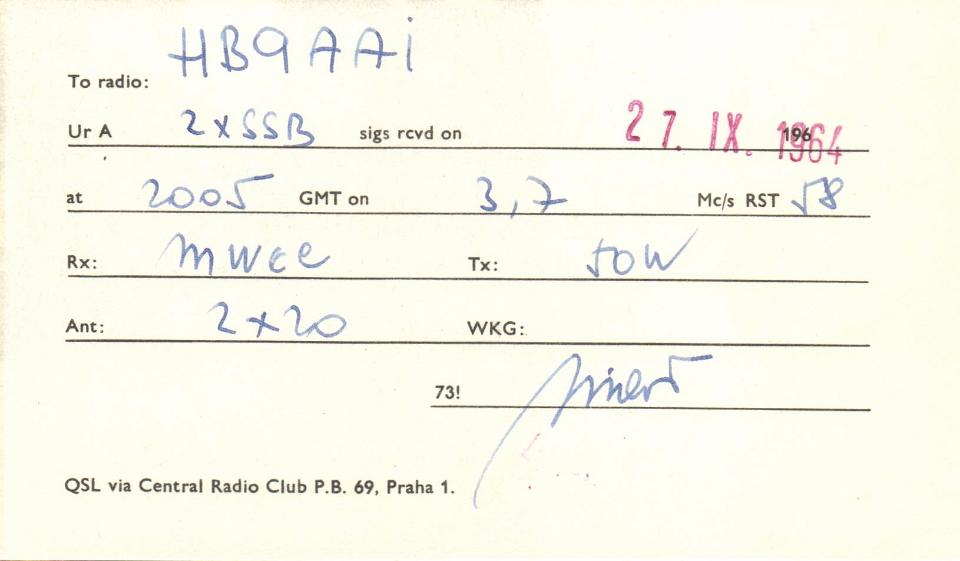 To radio: HB9AAi
Ur A 2xSSB sigs rcvd on 27. IX. 1964
at 2005 GMT on 3,7 Mc/s RST 58
Rx: MWEC Tx: 50W
Ant: 2x20 WKG:
73!
QSL via Central Radio Club P.B. 69, Praha 1.